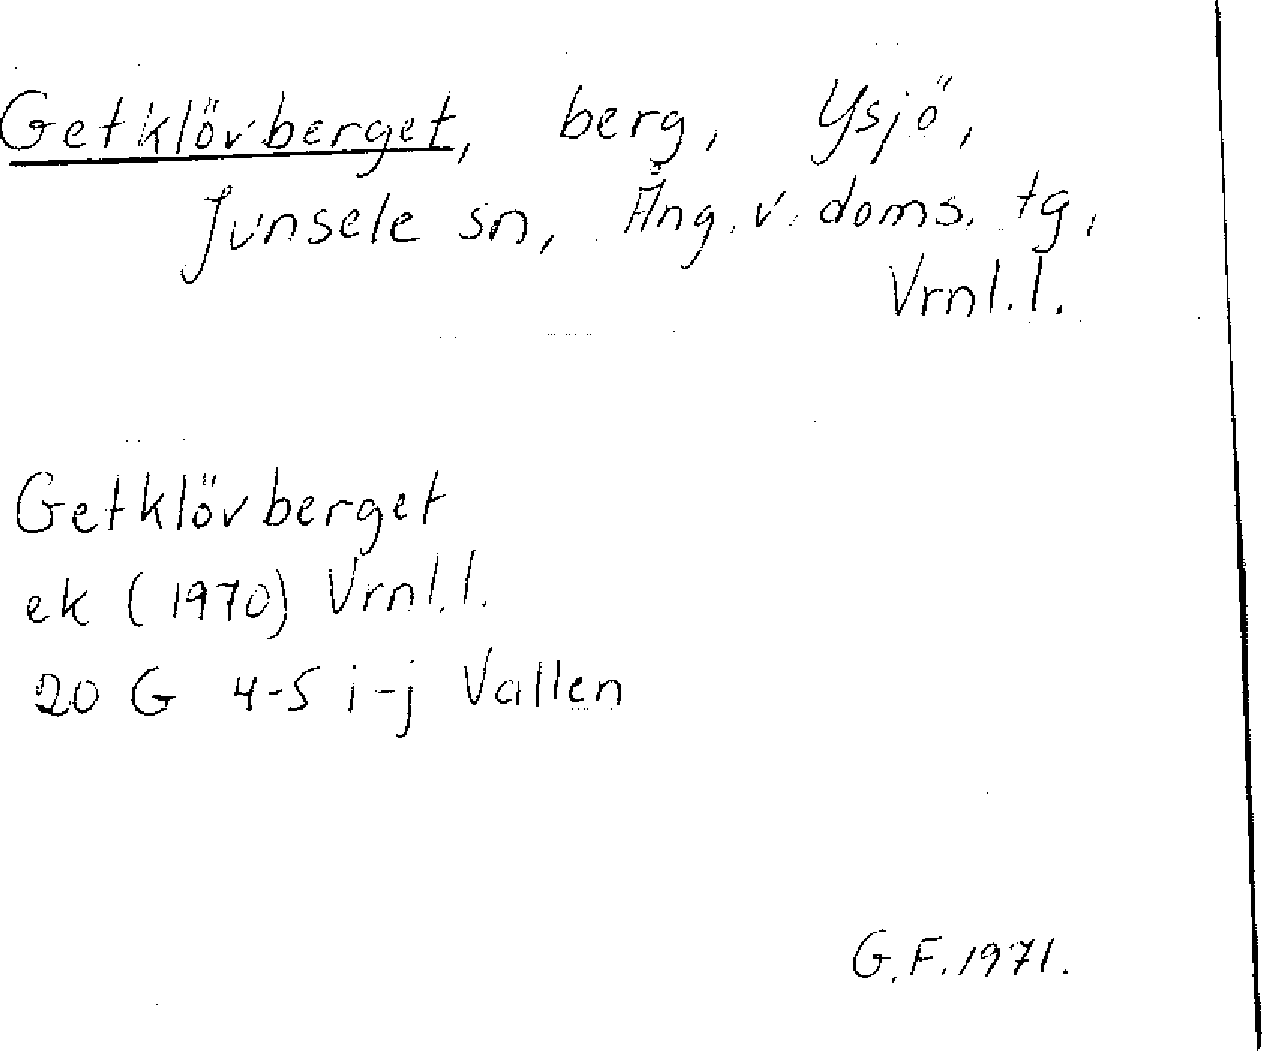 Getklövberget, berg, Ysjö,
Junsele sn, Ång. v. doms. tg,
Vrnl.l.
Getklövberget
ek (1970) Vrnl.l.
20 G 4-5 i-j Vallen
G.F.1971.